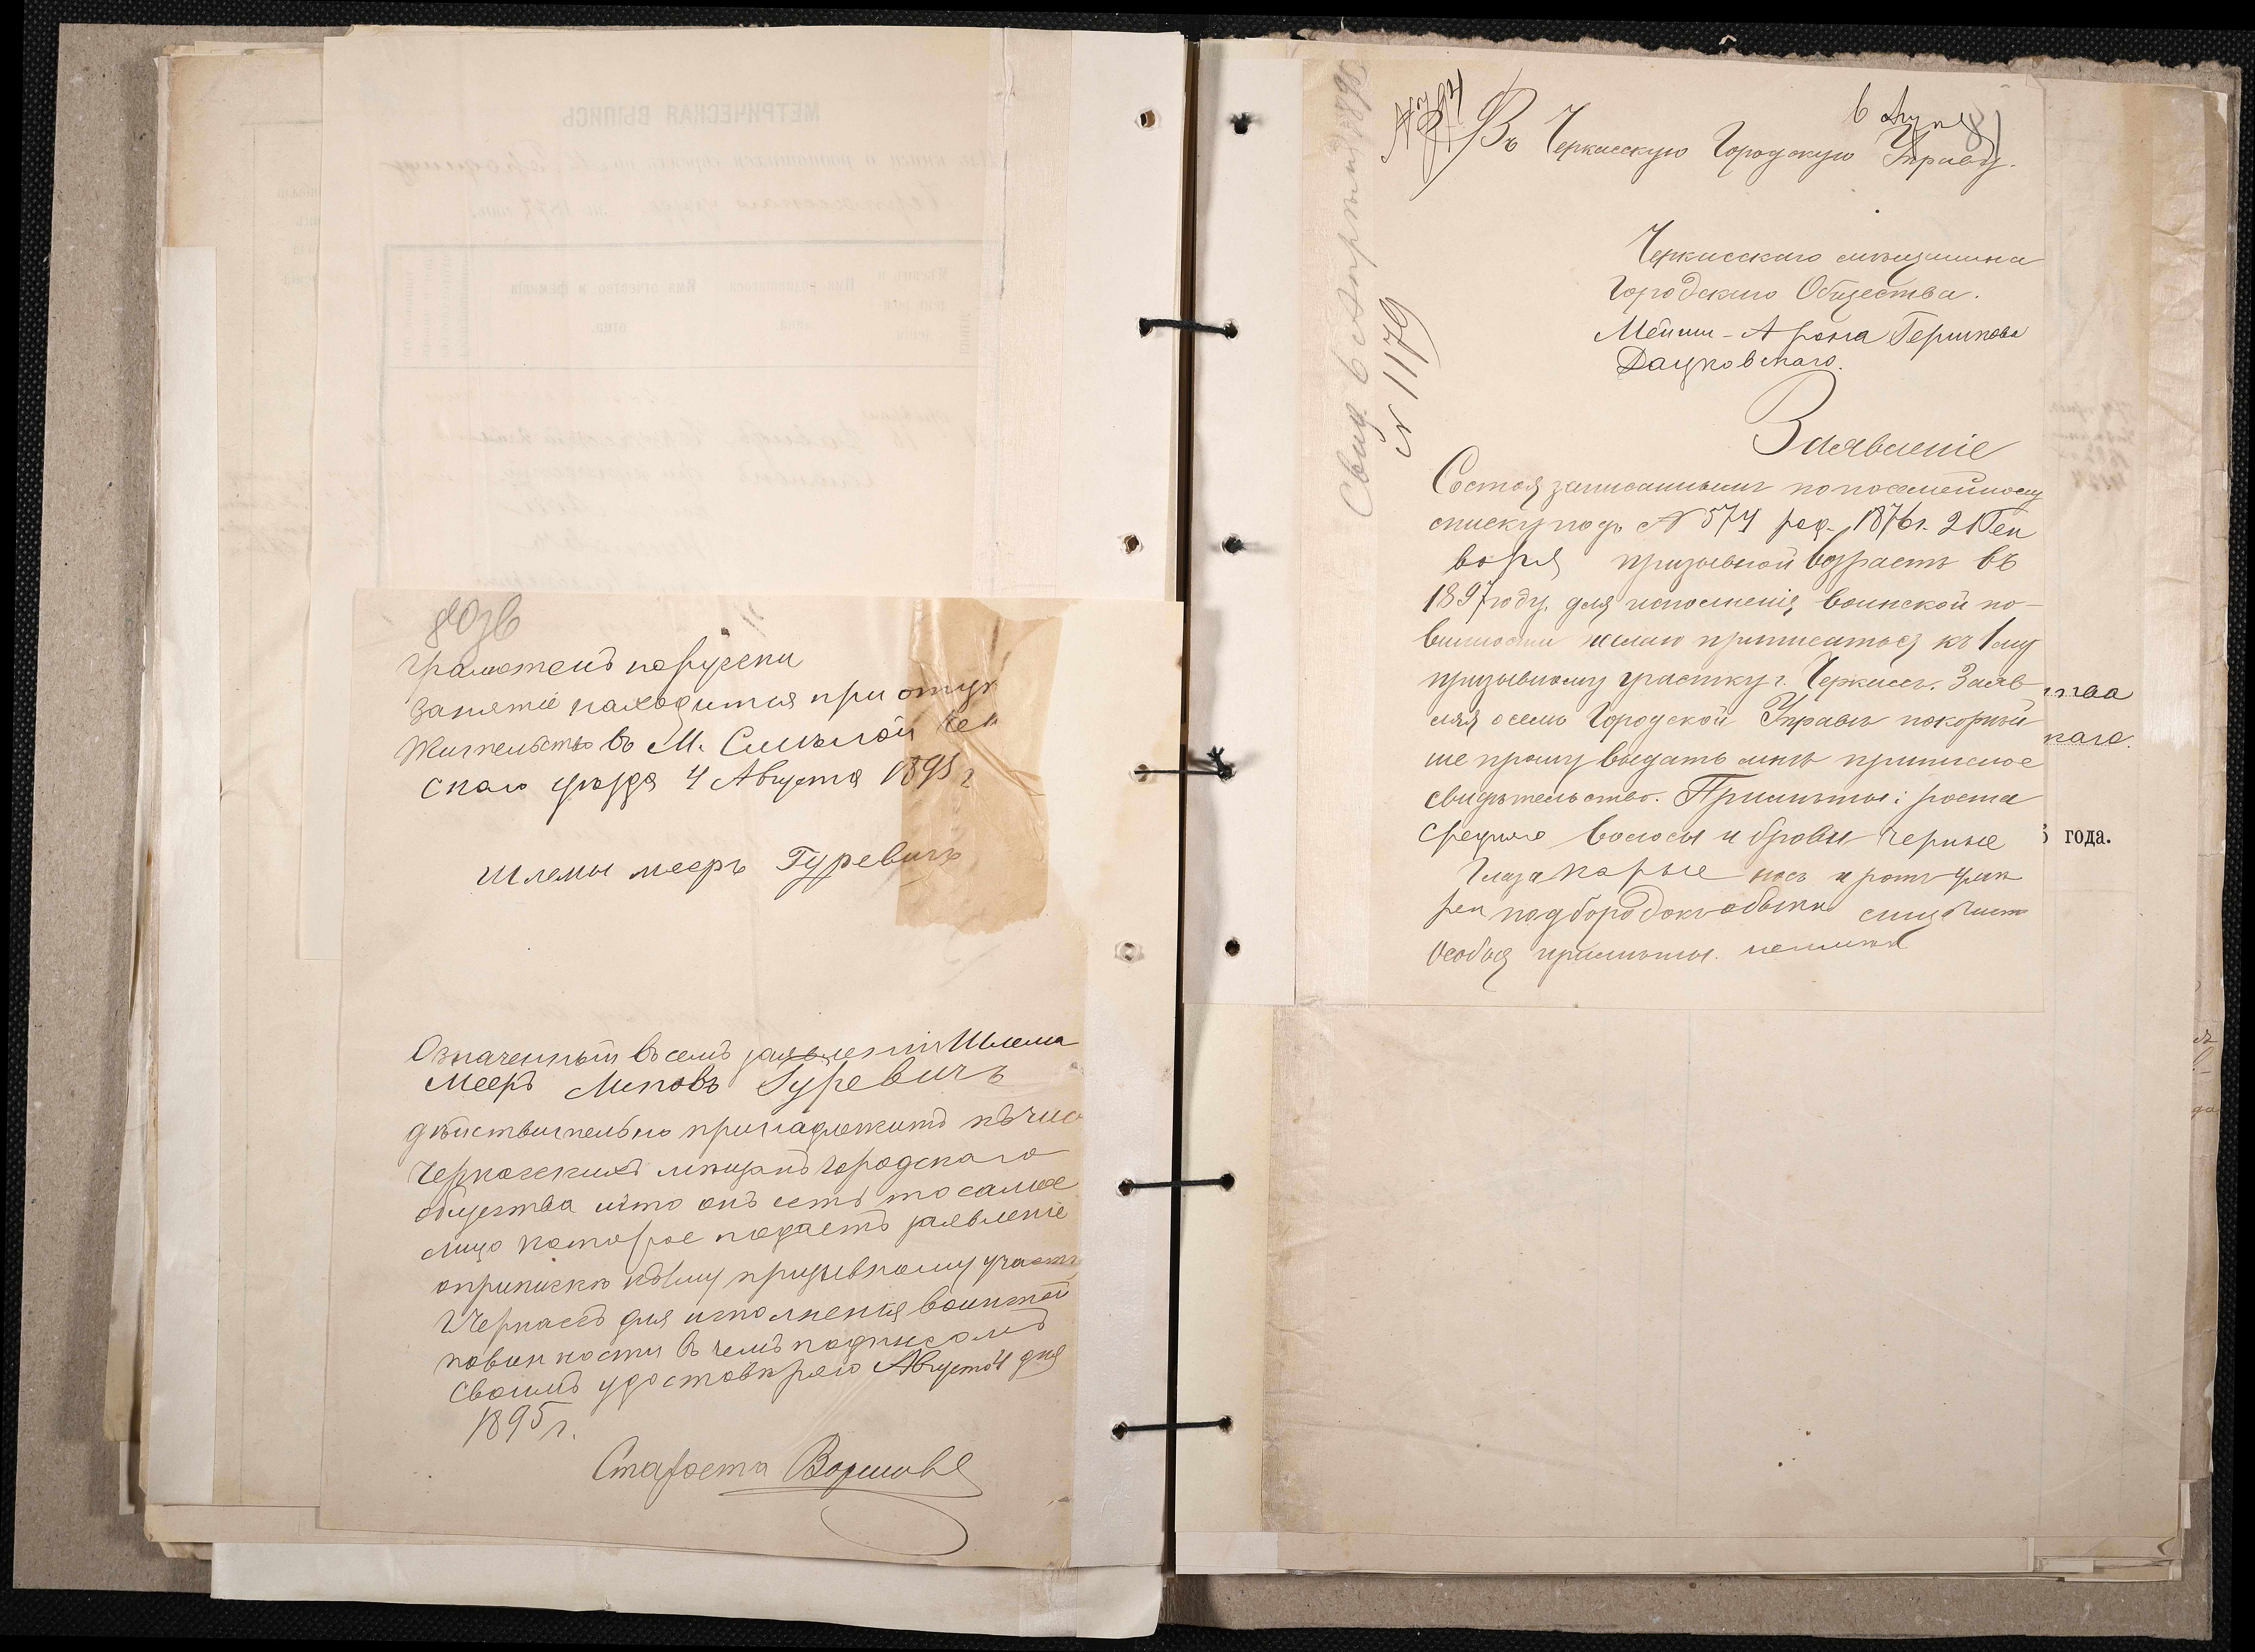 80 об
Грамотенъ порусски
Занятіе находится при отцу
Жительство въ М. Смѣлой Чер
скаго уѣзда 4 Августа 1895 г
Шлемы мееръ Гуревичъ
Означенный въ семъ заявленіи Шлема
Мееръ Гуревичъ
дѣйствительно принадлежитъ къ чис
Черкасскихъ мѣщанъ городскаго
общества и что онъ есть то самое
лицо которое подаетъ заявленіе
о припискѣ къ 1му призывному участк
г Черкасъ для исполненія воинской
повинности въ чемъ подписомъ
своимъ удостовѣряю Августа 4 дня
1895 г.
Староста
81
Въ Черкасскую Городскую Управу.
Черкасскаго мѣщанина
Городскаго Общества.
Арона Гершкова
Дацковскаго.
Заявленіе
Состоя записаннымъ по посемейному
списку подъ № 574 род. 1876 г. 21 Ген
варя призывной возрастъ въ
1897 году, для исполненія воинской по-
винности желаю приписаться къ 1 му
призывному участку г. Черкасъ. Заяв
ляя о семъ Городской Управѣ покорнѣй
ше прошу выдать мнѣ приписное
свидѣтельство. Примѣты: роста
средняго волосы и брови черные
Глаза карые носъ и ротъ умѣ
рен подбородокъ обыкн лицо чист
Особыя примѣты неимѣетъ
Свид. 6 Августа 1895
№ 1179
тва
каго.
года.